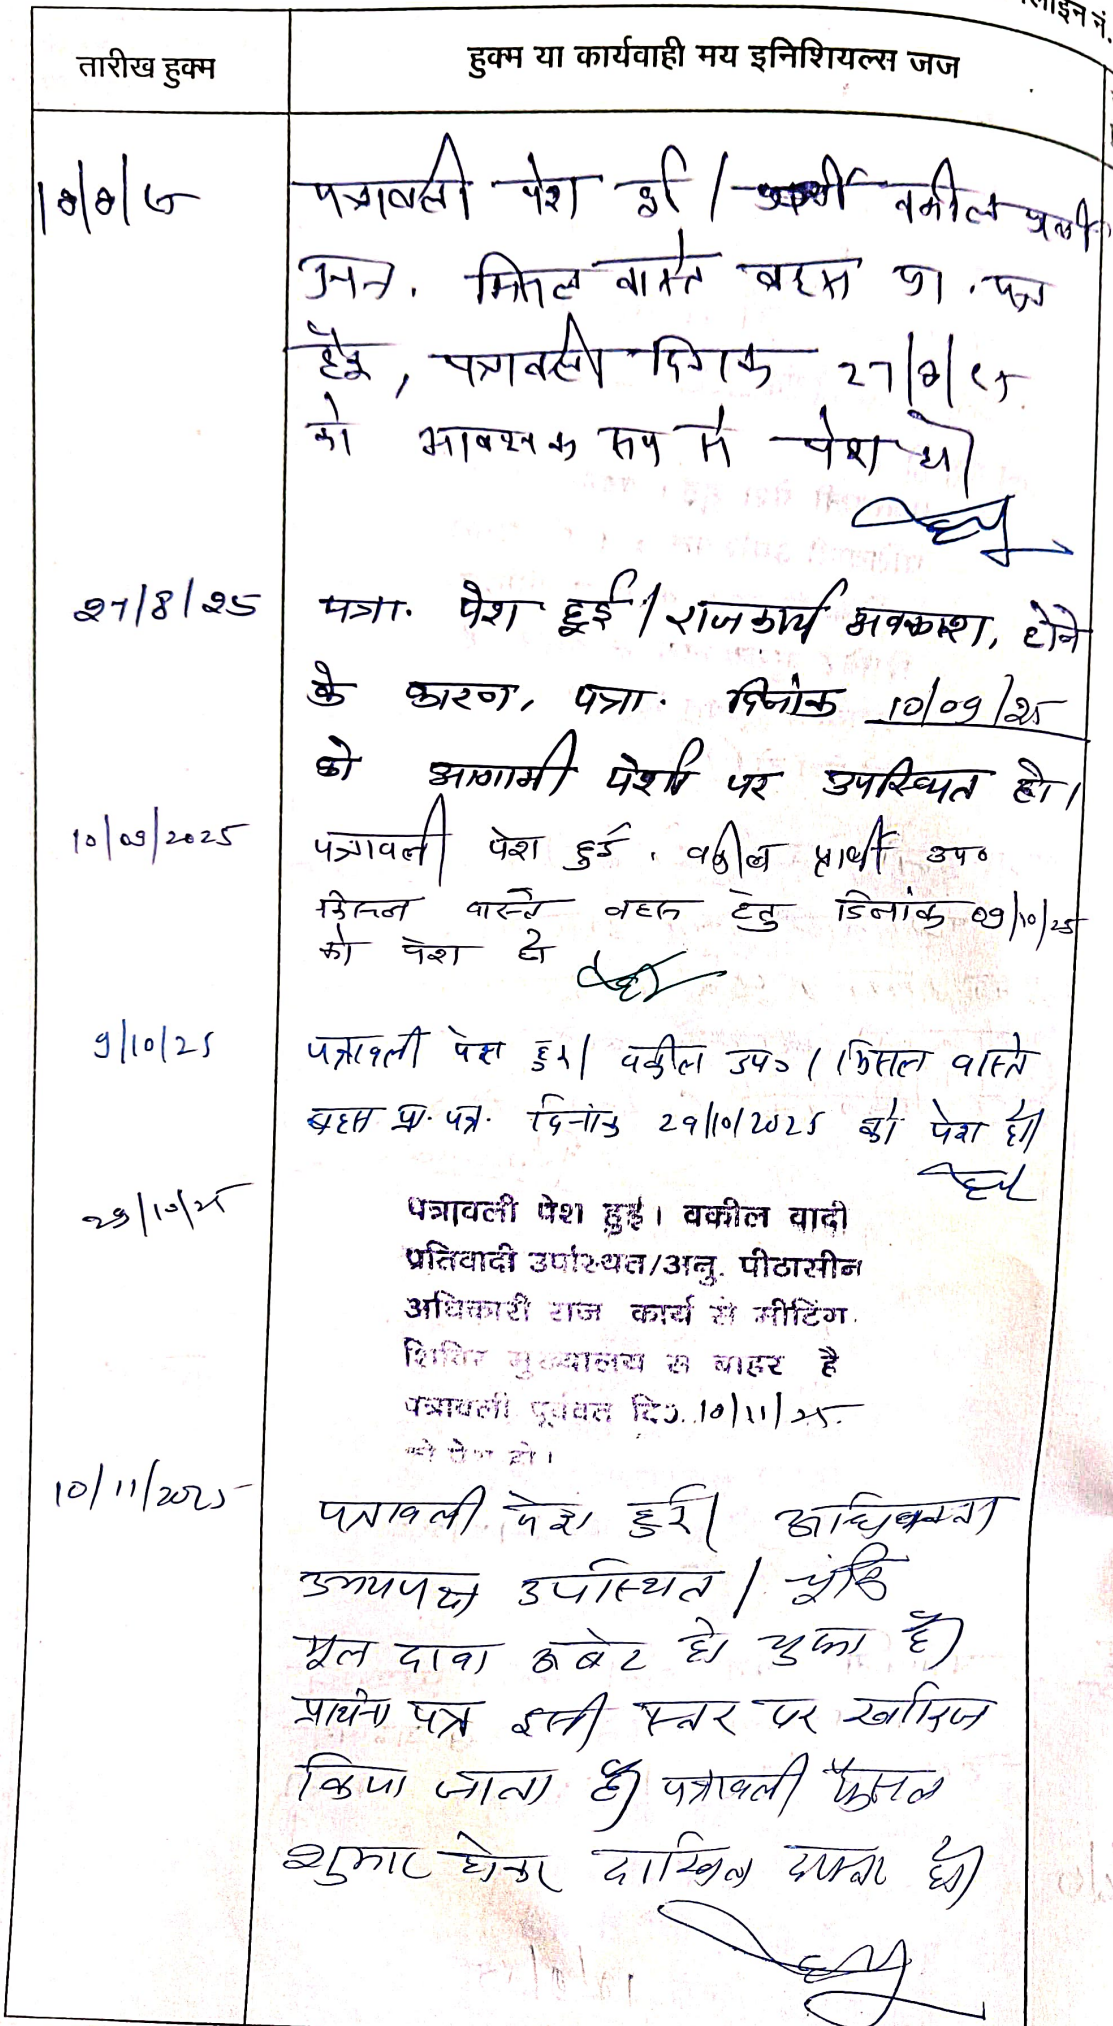 लाइन नं.
तारीख हुक्म
हुक्म या कार्यवाही मय इनिशियल्स जज
पत्रावली पेश हुई / वकील प्रार्थी
उप. मिसल वास्ते बहस प्रा. पत्र
हेतु, पत्रावली दिनांक 27/8/25
को आवश्यक रूप से पेश हो
27/8/25
पत्रा. पेश हुई / राजकार्य अवकाश, होने
के कारण, पत्रा. दिनांक 10/09/25
को आगामी पेशी पर उपस्थित हो।
10/09/2025
पत्रावली पेश हुई. वकील प्रार्थी उप०
मिसल वास्ते बहस हेतु दिनांक 09/10/25
को पेश हो
9/10/25
पत्रावली पेश हुई। वकील उप० / मिसल वास्ते
बहस प्रा. पत्र. दिनांक 29/10/2025 को पेश हो।
29/10/25
पत्रावली पेश हुई। वकील वादी
प्रतिवादी उपस्थित/अनु. पीठासीन
अधिकारी राज कार्य से मीटिंग.
शिविर मुख्यालय से बाहर है
पत्रावली पूर्ववत दि०. 10/11/25.
को पेश हो।
10/11/2025
पत्रावली पेश हुई। अधिवक्ता
उभयपक्ष उपस्थित / चूंकि
मूल दावा अबेट हो चुका है।
प्रार्थना पत्र इसी स्तर पर खारिज
किया जाता है। पत्रावली फैसल
शुमार होकर दाखिल दफ्तर हो।